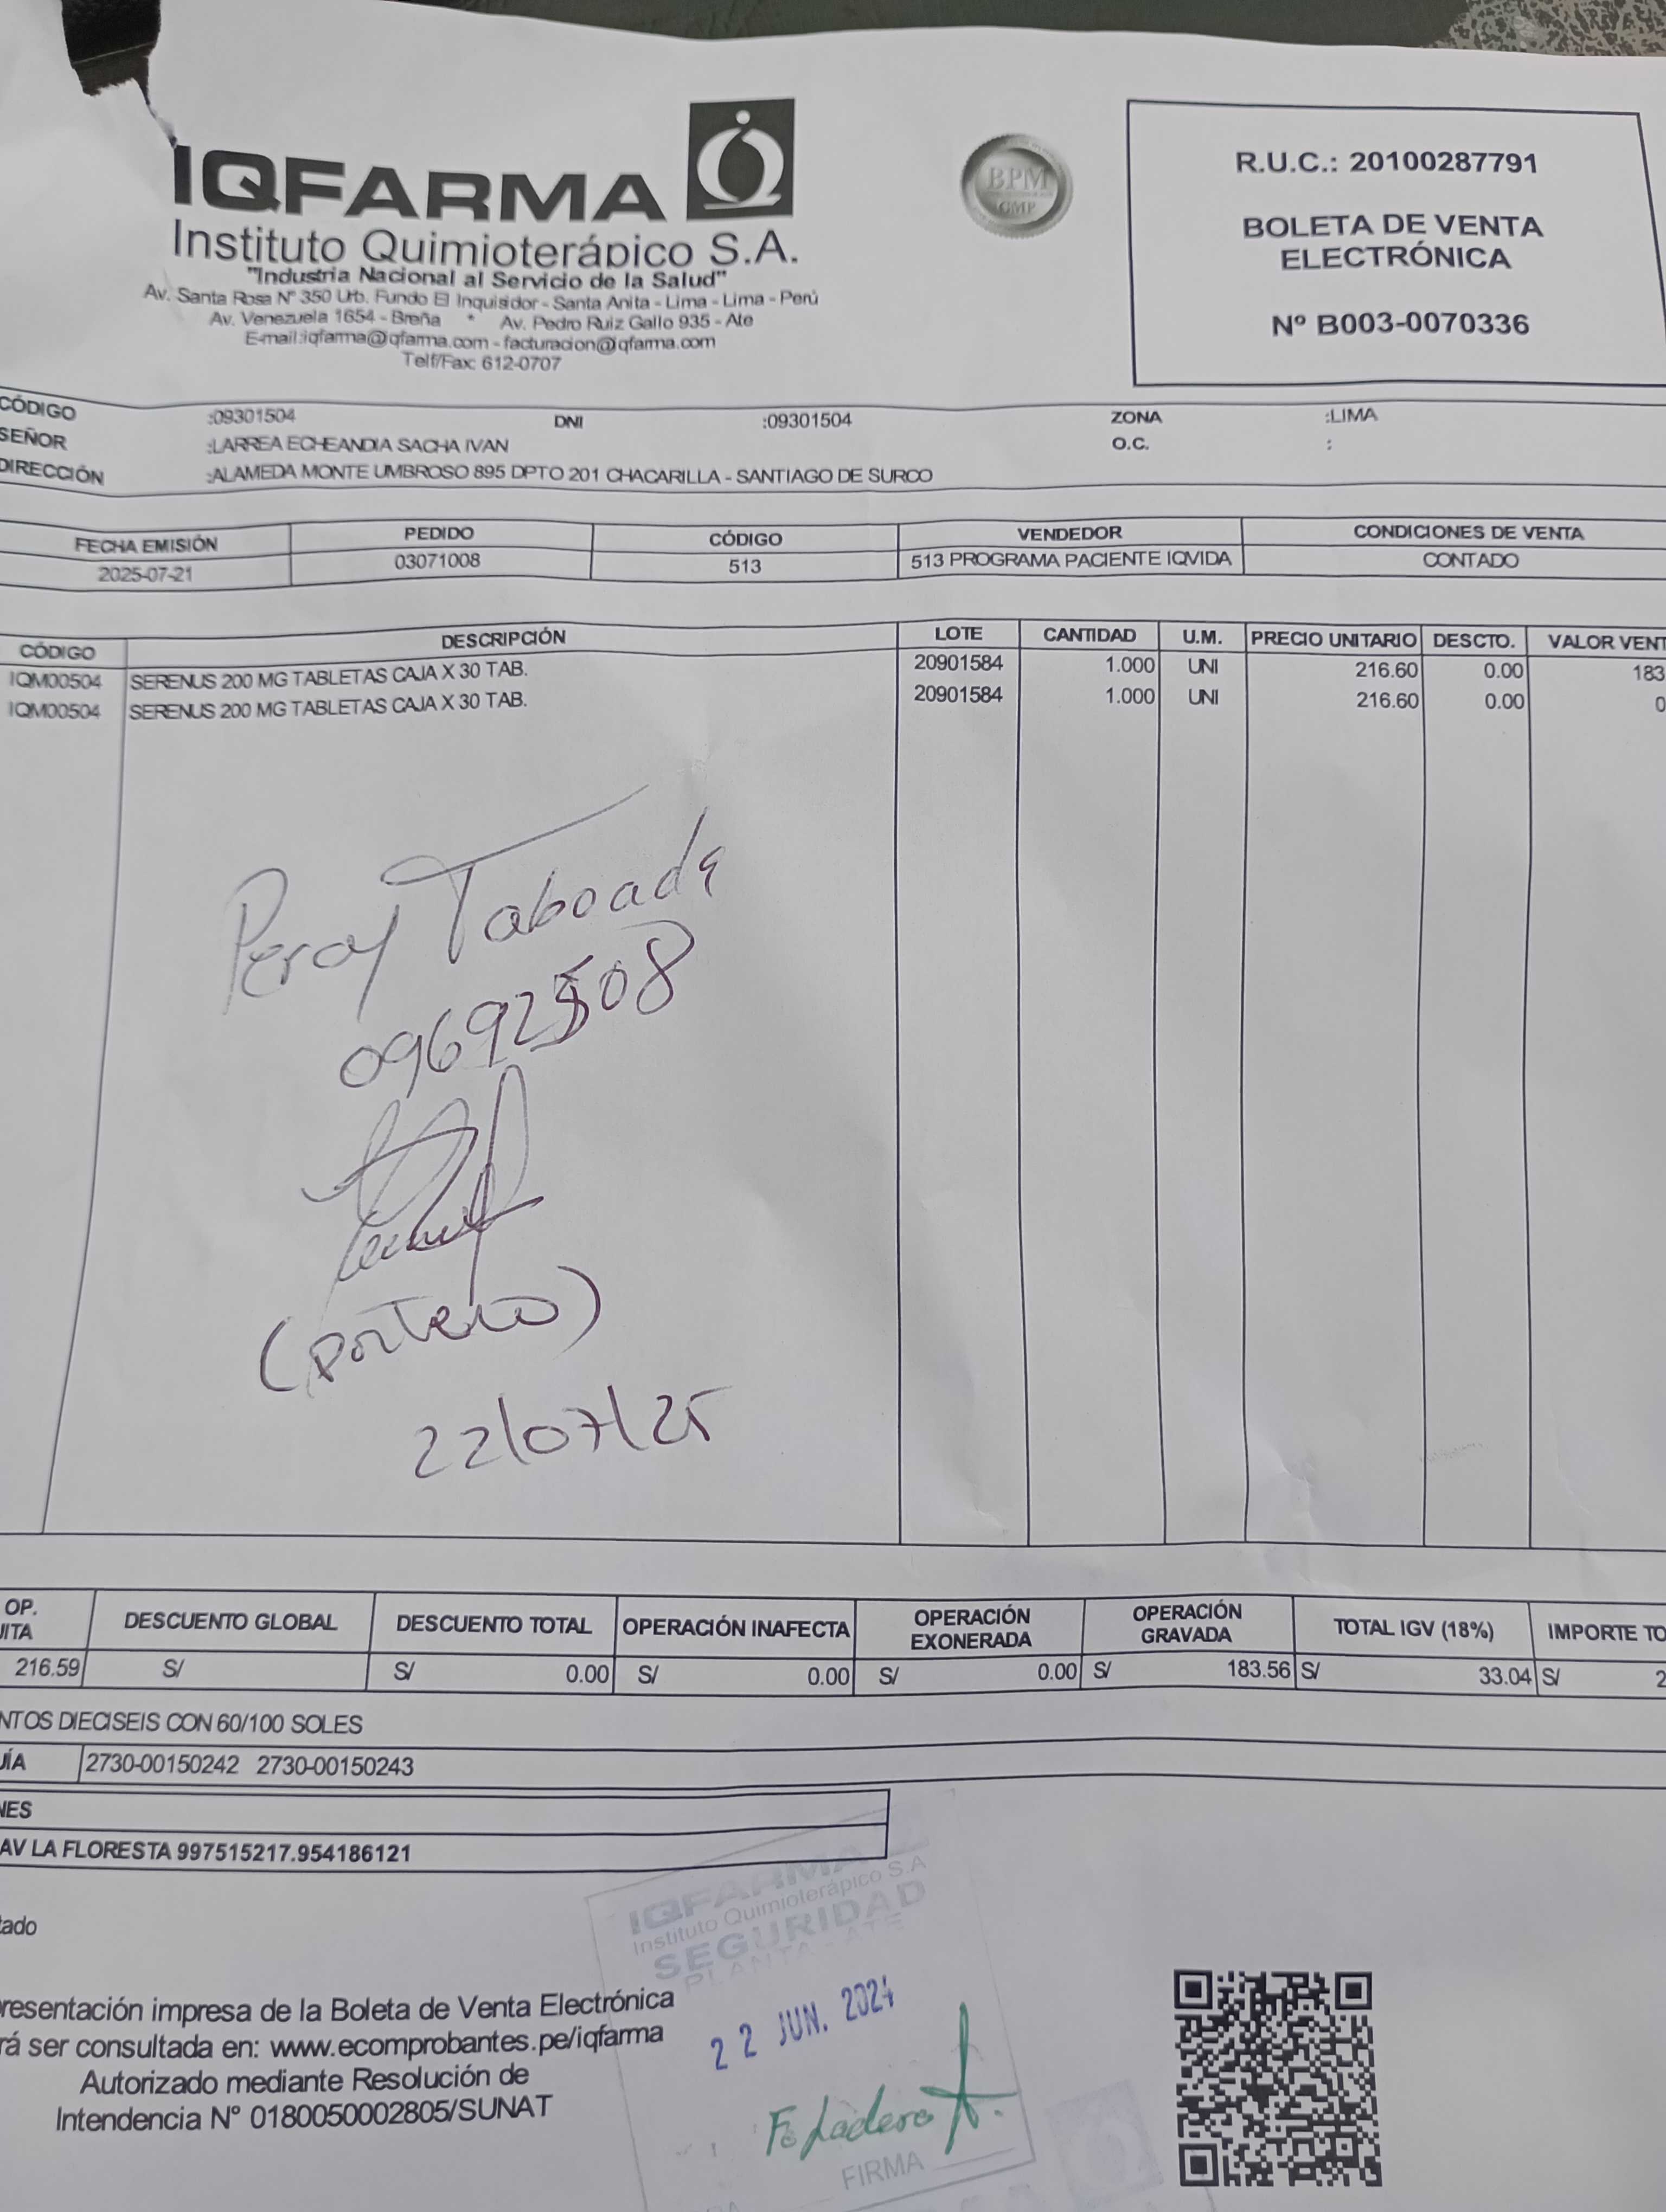 IQFARMA
Instituto Quimioterápico S.A.
"Industria Nacional al Servicio de la Salud"
Av. Santa Rosa N° 350 Urb. Fundo El Inquisidor - Santa Anita - Lima - Lima - Perú
Av. Venezuela 1654 - Breña * Av. Pedro Ruiz Gallo 935 - Ate
E-mail:iqfarma@iqfarma.com - facturacion@iqfarma.com
Telf/Fax: 612-0707
BPM
GMP
R.U.C.: 20100287791
BOLETA DE VENTA
ELECTRÓNICA
Nº B003-0070336
CÓDIGO :09301504 DNI :09301504 ZONA :LIMA
SEÑOR :LARREA ECHEANDIA SACHA IVAN O.C. :
DIRECCIÓN :ALAMEDA MONTE UMBROSO 895 DPTO 201 CHACARILLA - SANTIAGO DE SURCO
FECHA EMISIÓN PEDIDO CÓDIGO VENDEDOR CONDICIONES DE VENTA
2025-07-21 03071008 513 513 PROGRAMA PACIENTE IQVIDA CONTADO
CÓDIGO DESCRIPCIÓN LOTE CANTIDAD U.M. PRECIO UNITARIO DESCTO. VALOR VENT
IQM00504 SERENUS 200 MG TABLETAS CAJA X 30 TAB. 20901584 1.000 UNI 216.60 0.00 183
IQM00504 SERENUS 200 MG TABLETAS CAJA X 30 TAB. 20901584 1.000 UNI 216.60 0.00 0
Percy Taboada
09692508
(portero)
22/07/25
OP. DESCUENTO GLOBAL DESCUENTO TOTAL OPERACIÓN INAFECTA OPERACIÓN EXONERADA OPERACIÓN GRAVADA TOTAL IGV (18%) IMPORTE TO
UITA
216.59 S/ S/ 0.00 S/ 0.00 S/ 0.00 S/ 183.56 S/ 33.04 S/ 2
NTOS DIECISEIS CON 60/100 SOLES
UÍA 2730-00150242 2730-00150243
NES
AV LA FLORESTA 997515217.954186121
tado
resentación impresa de la Boleta de Venta Electrónica
rá ser consultada en: www.ecomprobantes.pe/iqfarma
Autorizado mediante Resolución de
Intendencia N° 0180050002805/SUNAT
IQFARMA
Instituto Quimioterápico S.A
SEGURIDAD
PLANTA - ATE
22 JUN. 2024
FIRMA